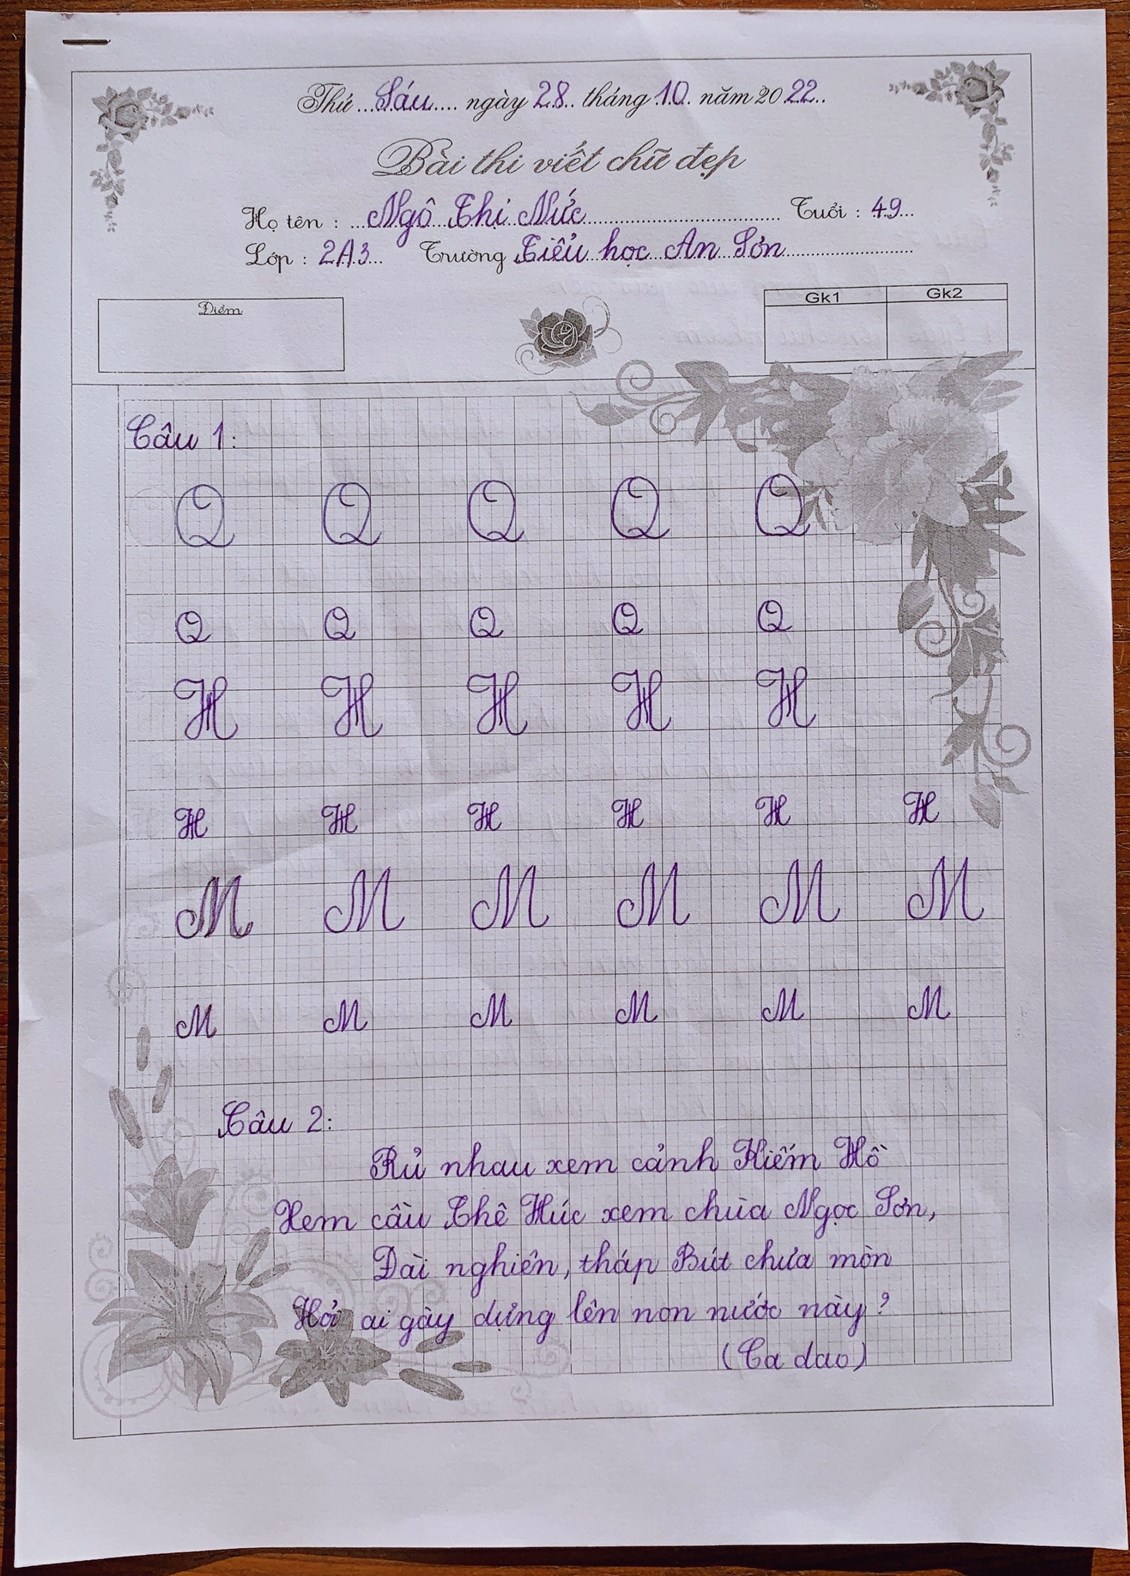 Thứ ...Sáu.... ngày 28.. tháng 10. năm 2022..
Bài thi viết chữ đẹp
Họ tên : ...Ngô Thị Nức... Tuổi : 49...
Lớp : 2A3... Trường Tiểu học An Sơn...
Điểm
Gk1 Gk2
Câu 1:
Q Q Q Q Q
Q Q Q Q Q
H H H H H
H H H H H H
M M M M M M
M M M M M M
Câu 2:
Rủ nhau xem cảnh Kiếm Hồ
Xem cầu Thê Húc xem chùa Ngọc Sơn,
Đài nghiên, tháp Bút chưa mòn
Hỏi ai gây dựng lên non nước này?
(Ca dao)